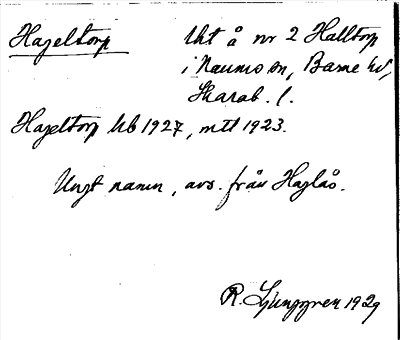 Hageltorp
Uht å nr 2 Halltorp
i Naums sn, Barne hd,
Skarab. l.
Hageltorp hb 1927, mtl 1923.
Ungt namn, avs. från Haglås.
R. Ljunggren 1929